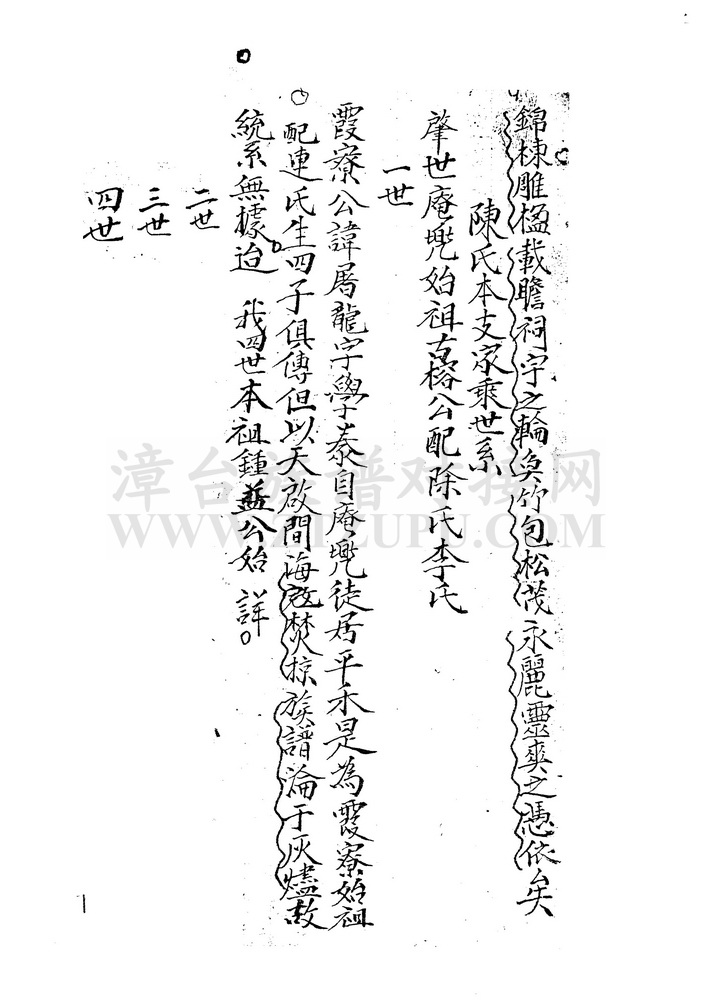 錦棟雕楹載瞻祠宇之輪奐竹包松茂永麗靈爽之憑依矣
陳氏本支家乘世系
肇世庵兜始祖古榕公配除氏李氏
一世
霞寮公諱屠龍字學泰自庵兜徒居平禾是為霞寮始祖
配連氏生四子俱傳但以天啟間海寇焚掠族譜淪于灰燼故
統系無據迨 我四世本祖鍾益公始 詳
二世
三世
四世
漳台族谱对接网
WWW.ZTZUPU.COM